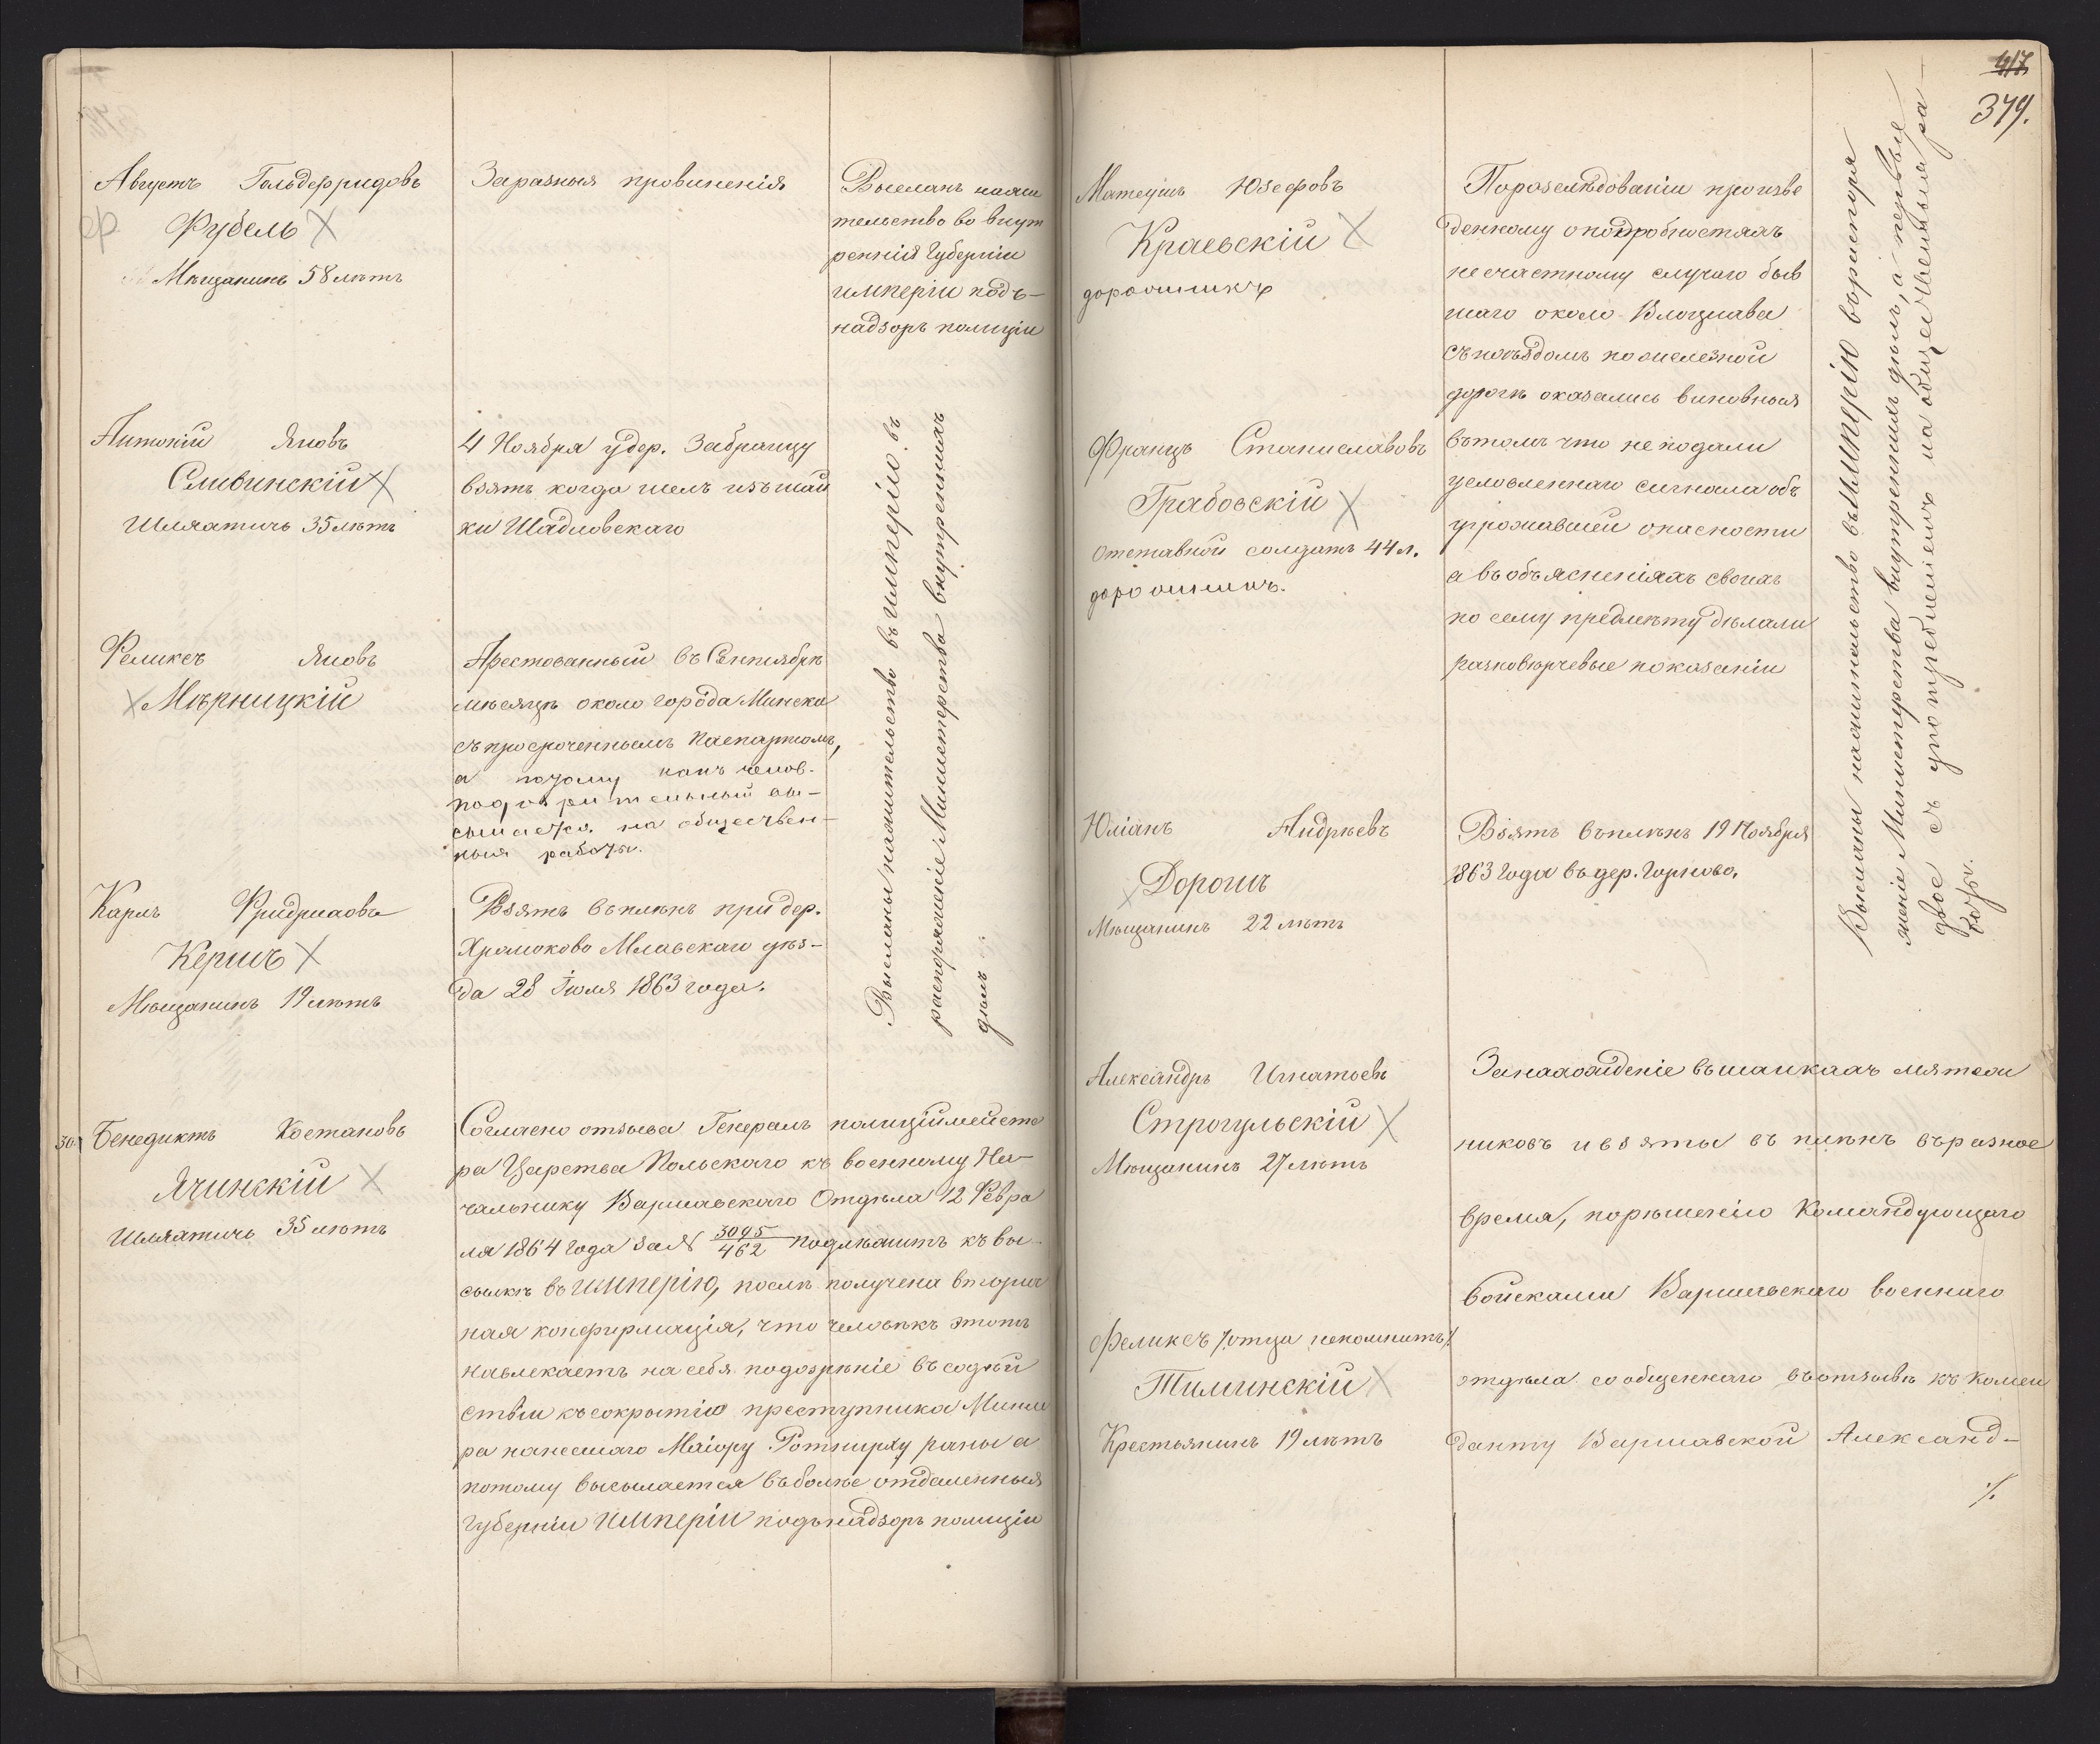 Августъ Гольдефридовъ
Фубель
Мѣщанинъ 58 лѣтъ
За разныя провиненія
Высланъ на жи
тельство во внут
реннія Губерніи
имперіи подъ-
надзоръ полиціи
Антоній Яновъ
Сливинскій
Шляхтичь 35 лѣтъ
4 Ноября у дер.
взятъ когда шелъ изъ шай
ки Шадловскаго
Феликсъ Яновъ
Мѣрницкій
Арестованный въ Сентябрѣ
мѣсяцѣ около города Минска
съ просроченнымъ паспортомъ,
а потому какъ челов.
подозрительный вы-
сылается на обществен-
ныя работы.
Карлъ Фридриховъ
Кершъ
Мѣщанинъ 19 лѣтъ
Взятъ въ плѣнъ при дер.
Млавскаго уѣз-
да 28 Іюля 1863 года.
Высланы на жительство въ Имперію въ
распоряженіе Министерства внутреннихъ
дѣлъ.
30. Бенедиктъ Костановъ
Ячинскій
Шляхтичь 35 лѣтъ
Согласно отзыва Генералъ полиціймейсте
ра Царства Польскаго къ военному На-
чальнику Варшавскаго Отдѣла 12 Февра
ля 1864 года за № 3095/462 подлежитъ къ вы-
сылкѣ въ имперію, послѣ получена вторич
ная конфирмація, что человѣкъ этотъ
навлекаетъ на себя подозрѣніе въ содѣй
ствіи къ сокрытію преступника
ра нанесшаго Маіору Роткирху раны а
потому высылается въ болѣе отдаленныя
Губерніи имперіи подъ надзоръ полиціи
417
379.
Матеушъ Юзефовъ
Краевскій
дорожникъ
По разслѣдованіи произве
денному о подробностяхъ
несчастному случаю быв
шаго около Влоцлава
съ поѣздомъ по железной
дорогѣ оказались виновныя
въ томъ что не подали
условленнаго сигнала объ
угрожавшей опасности
а въ объясненіяхъ своихъ
по сему предмѣту дѣлали
разноврчевые показаніи
Францъ Станиславовъ
Грабовскій
Отставной солдатъ 44 л.
дорожникъ.
Юліанъ Андрѣевъ
Дорошъ
Мѣщанинъ 22 лѣтъ
Взятъ въ плѣнъ 19 Ноября
1863 года въ дер. Горново.
Высланы на жительство въ имперію въ распоря
женіе Министерства внутреннихъ дѣлъ, а первые
двое съ употребленіемъ на общественныя ра-
боты.
Александръ Игнатьевъ
Строгульскій
Мѣщанинъ 27 лѣтъ
За нахожденіе въ шайкахъ мятеж
никовъ и взяты въ плѣнъ въ разное
время, по рѣшенію Командующаго
войсками Варшавскаго военнаго
отдѣла сообщеннаго въ отзывѣ къ Комен
данту Варшавской Александ-
Феликсъ /:отца непомнитъ:/
Тиминскій
Крестьянинъ 19 лѣтъ
·/.